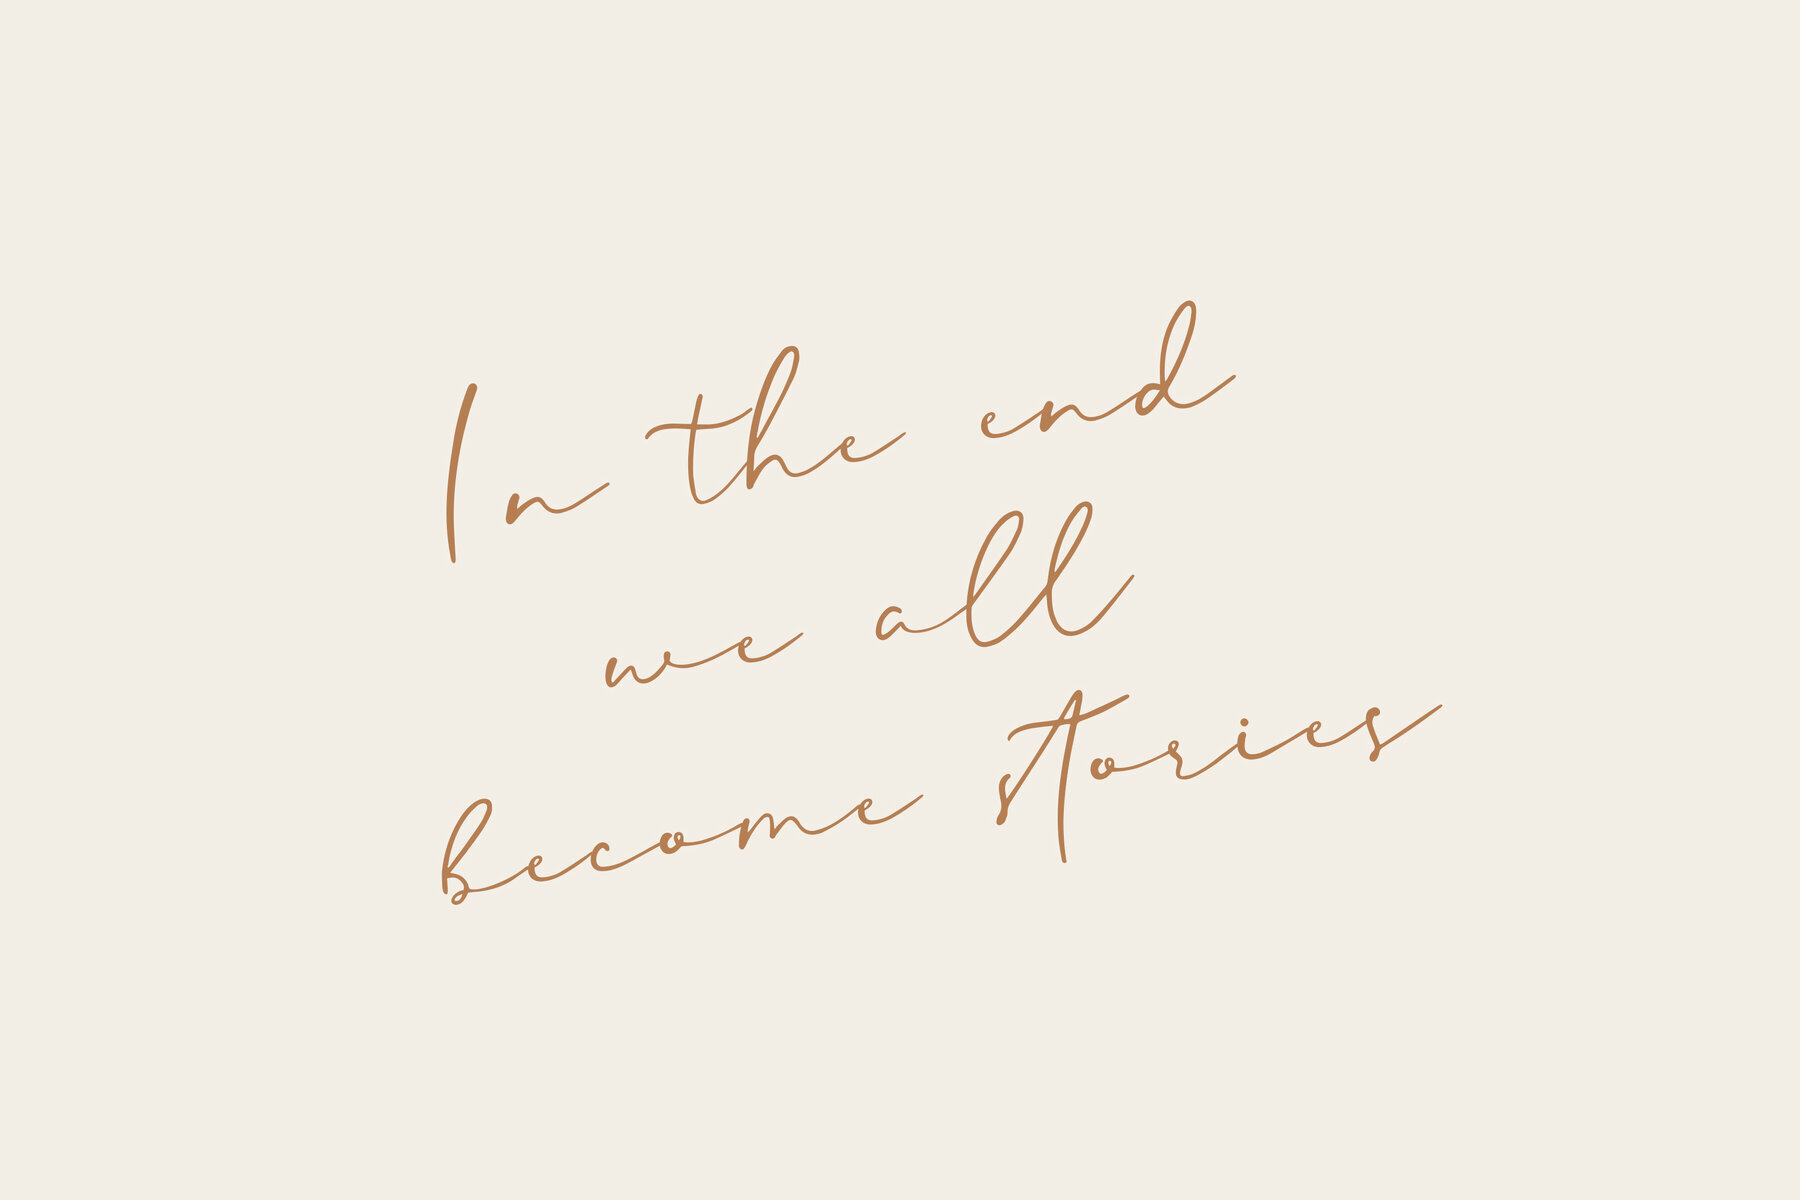 In the end
we all
become stories